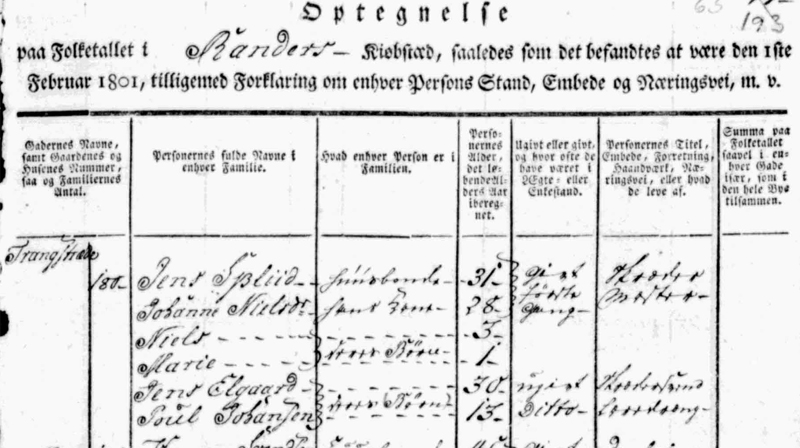 193
Optegnelse
paa Folketallet i Randers Kiøbstæd, saaledes som det befandtes at være den 1ste
Februar 1801, tilligemed Forklaring om enhver Persons Stand, Embede og Næringsvei, m. v.
Gadernes Navne, samt Gaardenes og Husenes Nummer, saa og Familiernes Antal.
Personernes fulde Navne i enhver Familie.
Hvad enhver Person er i Familien.
Personernes Alder, det løbende Alders Aar iberegnet.
Ugivt eller givt, og hvor ofte de have været i Ægte- eller Enkestand.
Personernes Titel, Embede, Forretning, Haandværk, Næringsvei, eller hvad de leve af.
Summa paa Folketallet saavel i enhver Gade især, som i den hele Bye tilsammen.
Trangstræde
180 Jens Spliid Huusbonde 31 givt Skræder
Johanne Nielsdr hans Kone 28 første gang Mester
Niels 3
Marie deres Børn 1
Jens Elgaard 30 ugivt Skrædersvend
Poul Johansen 13 Ditto Læredreng